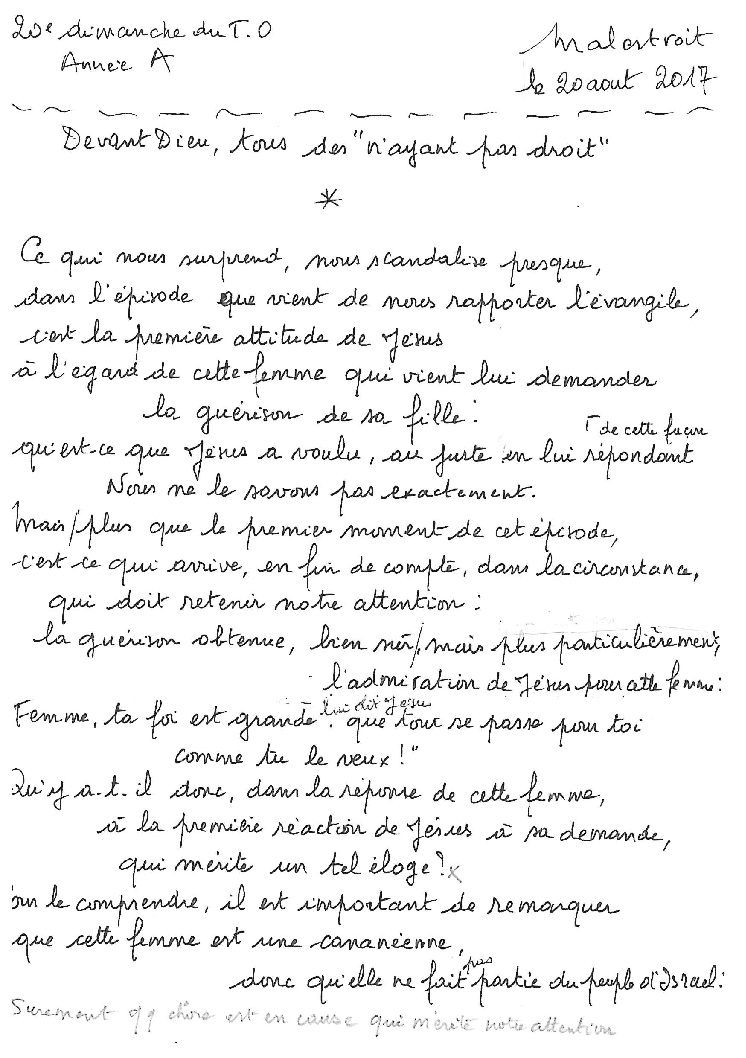 20e dimanche du T.O
Année A
Malestroit
le 20 aout 2017
Devant Dieu, tous des "n'ayant pas droit"
*
Ce qui nous surprend, nous scandalise presque,
dans l'épisode que vient de nous rapporter l'évangile,
c'est la première attitude de Jésus
à l'égard de cette femme qui vient lui demander
la guérison de sa fille :
de cette façon
qu'est-ce que Jésus a voulu, au juste en lui répondant
Nous ne le savons pas exactement.
Mais/plus que le premier moment de cet épisode,
c'est ce qui arrive, en fin de compte, dans la circonstance,
qui doit retenir notre attention :
la guérison obtenue, bien sûr/mais plus particulièrement,
l'admiration de Jésus pour cette femme :
lui dit Jésus
Femme, ta foi est grande : que tout se passe pour toi
comme tu le veux !"
Qu'y a-t-il donc, dans la réponse de cette femme,
à la première réaction de Jésus à sa demande,
qui mérite un tel éloge ? x
our le comprendre, il est important de remarquer
que cette femme est une cananéenne,
pas
donc qu'elle ne fait partie du peuple d'Israel :
Surement qq chose est en cause qui mérite notre attention